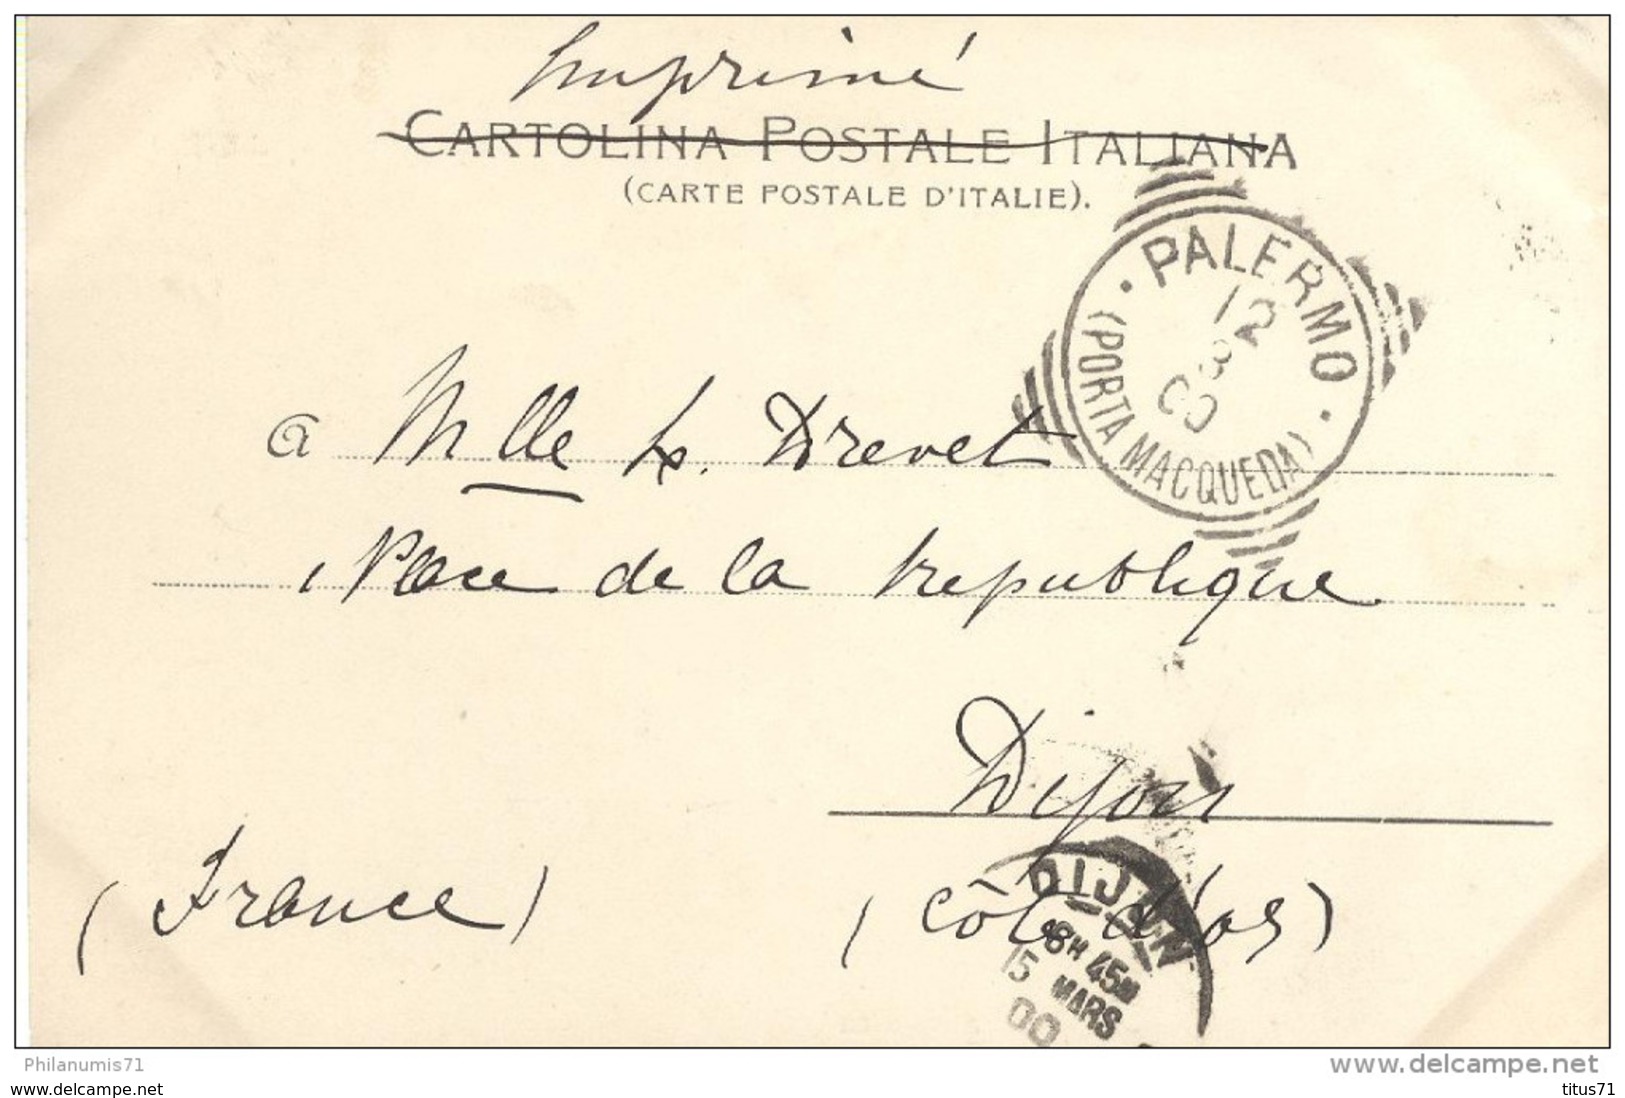 Imprimé
CARTOLINA POSTALE ITALIANA
(CARTE POSTALE D'ITALIE).
PALERMO
12
3
00
(PORTA MACQUEDA)
a Mlle L. Drevet
Place de la republique
Dijon
(France)
(Côte d'or)
DIJON
8H 45M
15 MARS
00
Philanumis71
www.delcampe.net
www.delcampe.net
titus71